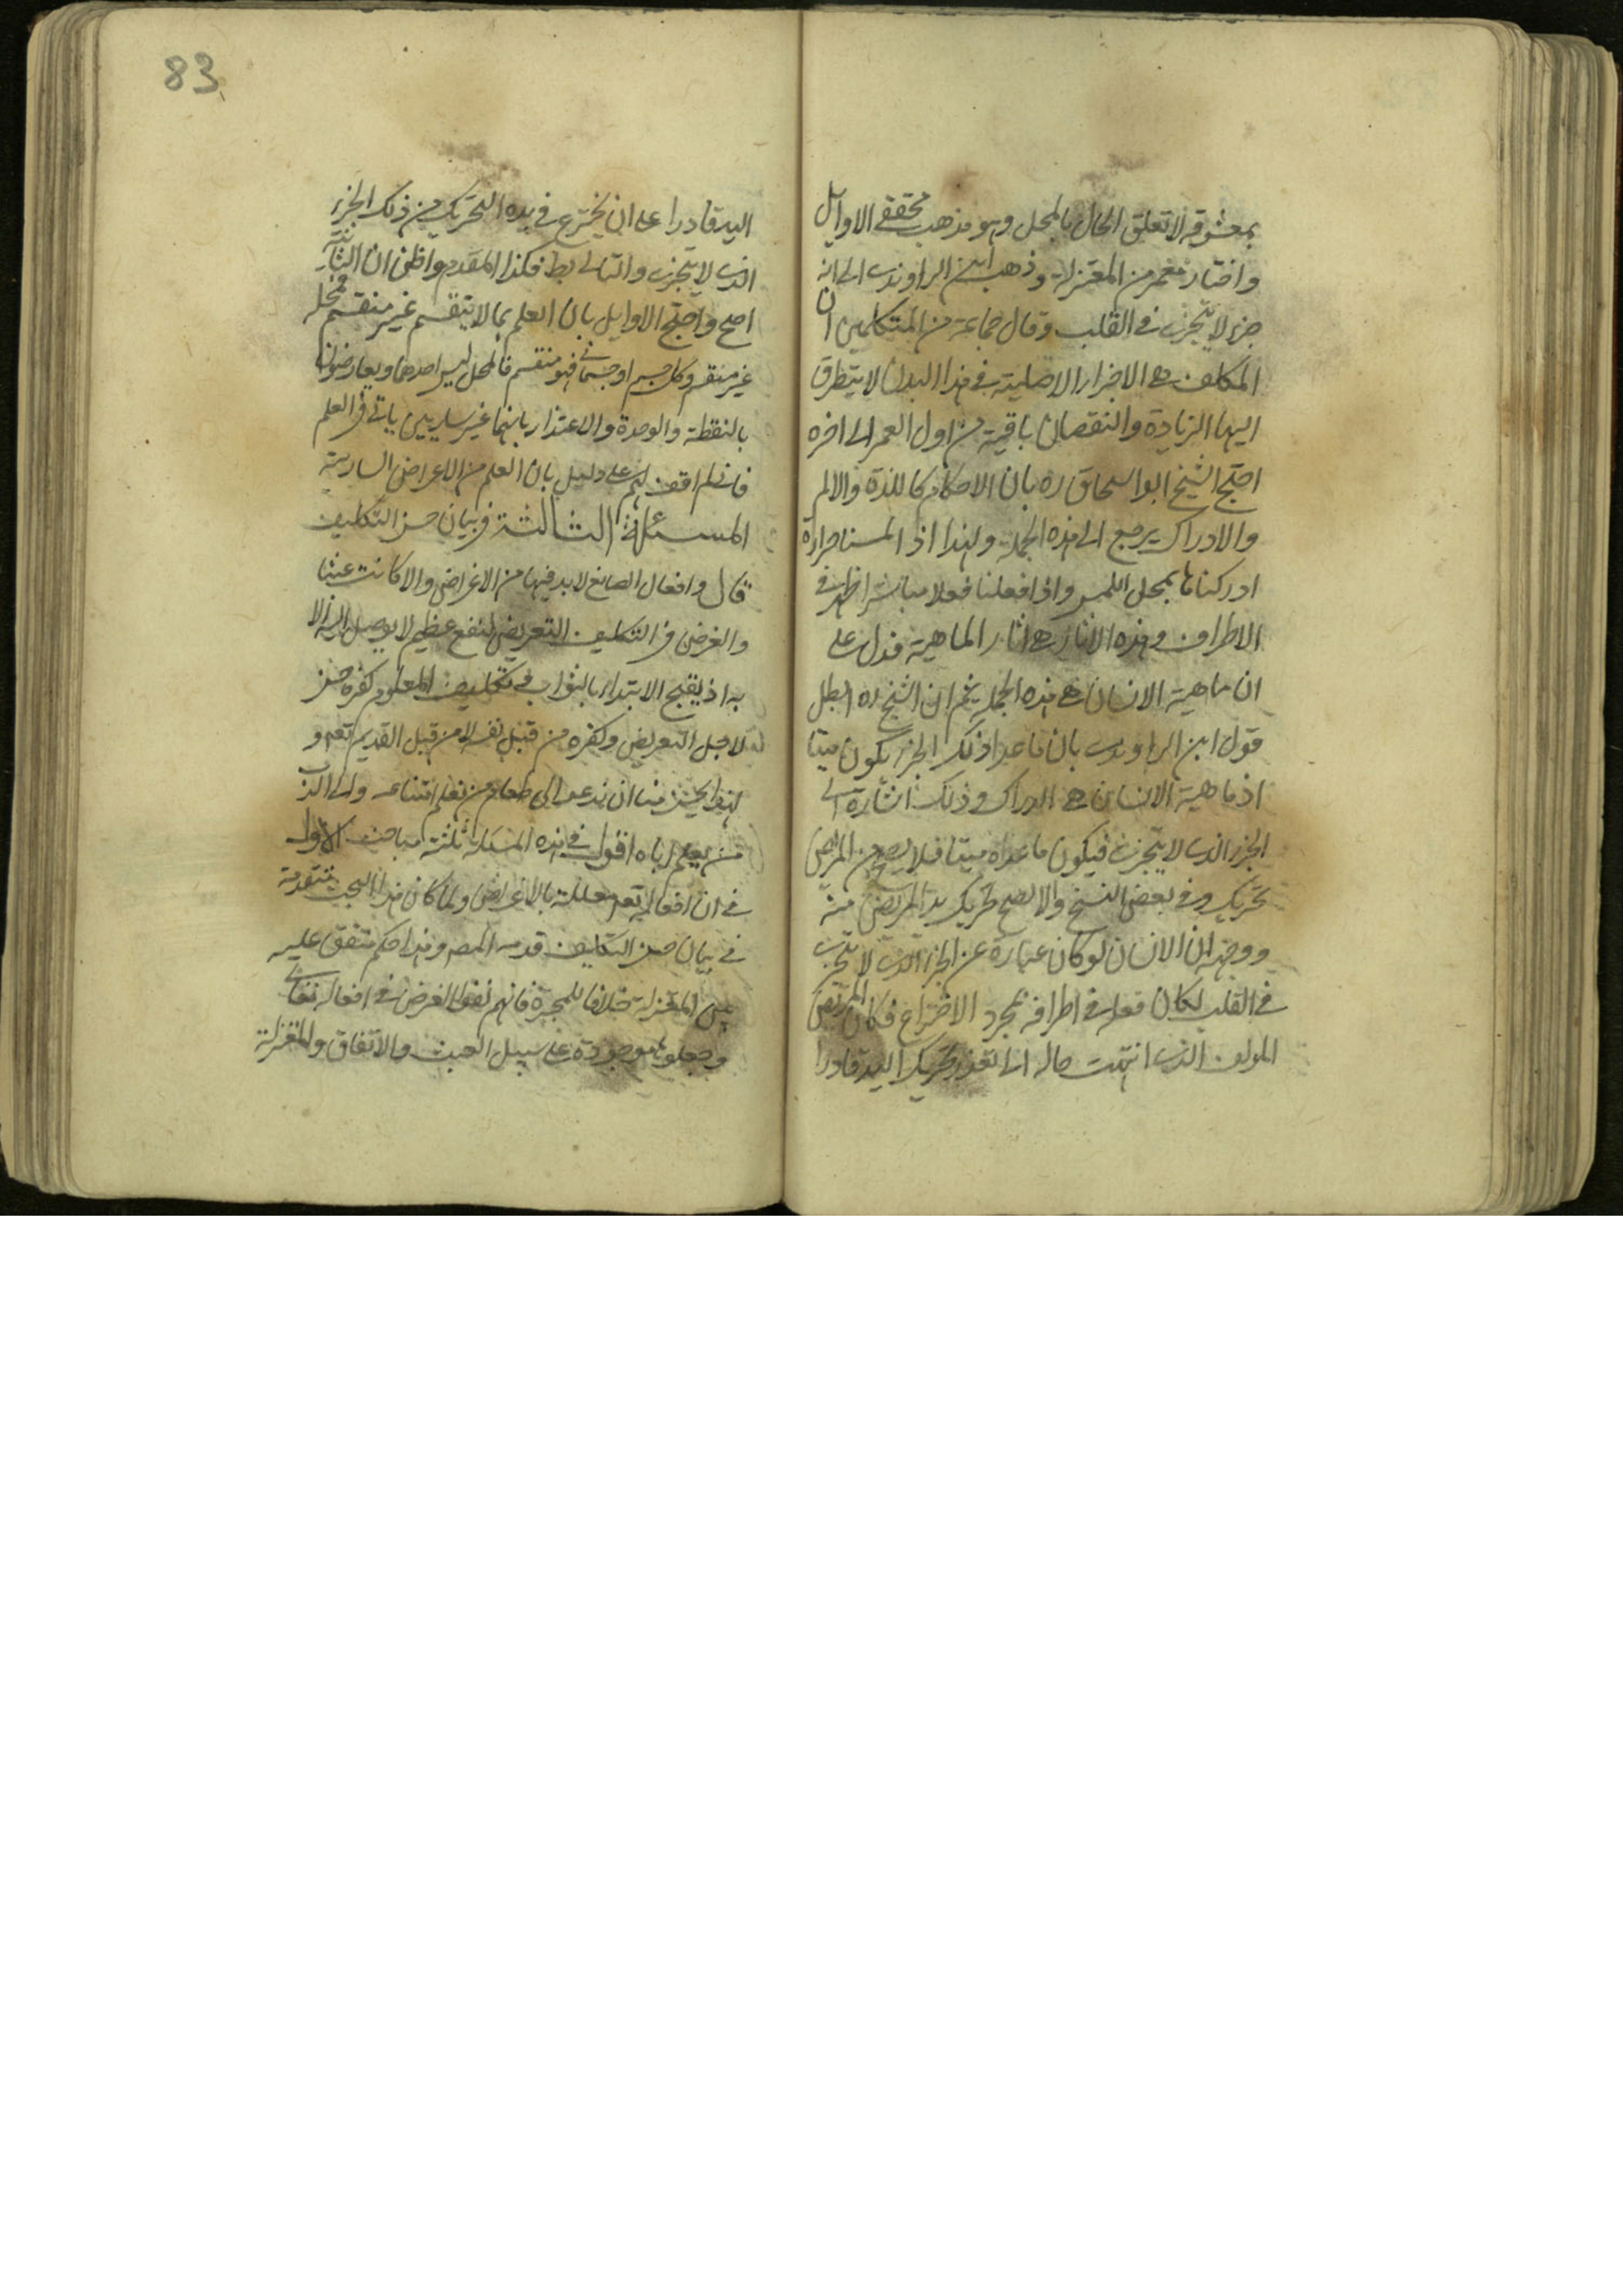 بمعشوقه لا تعلق الحال بالمحل وهو مذهب محققي الاوايل
واختاره معمر من المعتزلة وذهب ابن الراوندي الى انه
جزء لا يتجزى في القلب وقال جماعة من المتكلمين ان
المكلف هي الاجزاء الاصلية في هذا البدن لا يتطرق
اليها الزيادة والنقصان باقية من اول العمر الى اخره
احتج الشيخ ابو اسحاق ره بان الاحكام كاللذة والالم
والادراك يرجع الى هذه الجملة ولهذا اذا لمسنا حرارة
ادركناها بمحل اللمس واذا فعلنا فعلا مباشرا ظهر في
الاطراف وهذه الاثار هي اثار الماهية فدل على
ان ماهية الانسان هي هذه الجملة ثم ان الشيخ ره ابطل
قول ابن الراوندي بان ما عدا ذلك الجزء يكون ميتا
اذ ماهية الانسان هي الدراك وذلك اشارة الى
الجزء الذي لا يتجزى فيكون ما عداه ميتا فلا يصح من المريض
تحريك وفي بعض النسخ والا لصح تحريك يد المريض منه
ووجهه ان الانسان لو كان عبارة عن الجزء الذي لا يتجزى
في القلب لكان فعله في اطرافه بمجرد الاختراع فكان المريض
المولف الذي انتهت حاله الى تعذر تحريك اليد قادرا
83
اليد قادرا على ان يخترع في يده التحريك من ذلك الجزء
الذي لا يتجزى والتالى بط فكذا المقدم واظن ان الثانية
اصح واحتج الاوايل بان العلم بما لا ينقسم غير منقسم فمحله
غير منقسم وكل جسم او جسماني فهو منقسم فالمحل ليس احدهما ويعارضون
بالنقطة والوحدة والاعتذار بانهما غير ساريين ياتي في العلم
فاني لم اقف لهم على دليل بان العلم من الاعراض السارية
المسئلة الثالثة في بيان حسن التكليف
قال وافعال الصانع لا بد فيها من الاغراض والا كانت عبثا
والغرض في التكليف التعريض لنفع عظيم لا يوصل اليه الا
به اذ يقبح الابتداء بالثواب في تكليف المعلوم كفره حسن
لاجل التعريض وكفره من قبل نفسه لا من قبل القديم تعالى و
لهذا يحسن منا ان ندعو الى طعام من نعلم امتناعه والى الدين
من يعلم اباه اقول في هذه المسئلة ثلثة مباحث الاول
في ان افعاله تعالى معللة بالاغراض ولما كان هذا البحث متقدمة
في بيان حسن التكليف قدمه المصه وهذا حكم متفق عليه
بين المعتزلة خلافا للمجبرة فانهم نفوا الغرض في افعاله تعالى
وجعلوها موجودة على سبيل العبث والاتفاق والمعتزلة